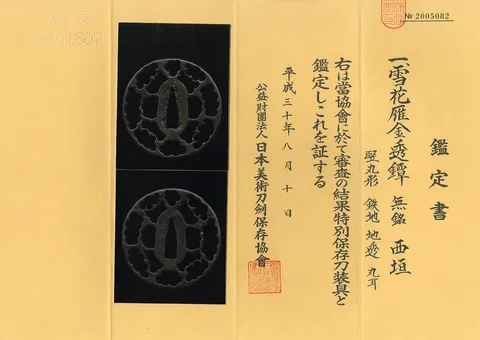 № 2005082
鑑定書
一、雪花雁金透鐔 無銘 西垣
竪丸形 鉄地 地透 丸耳
右は當協會に於て審査の結果特別保存刀装具と
鑑定しこれを証する
平成三十年八月十日
公益財團法人 日本美術刀劍保存協會